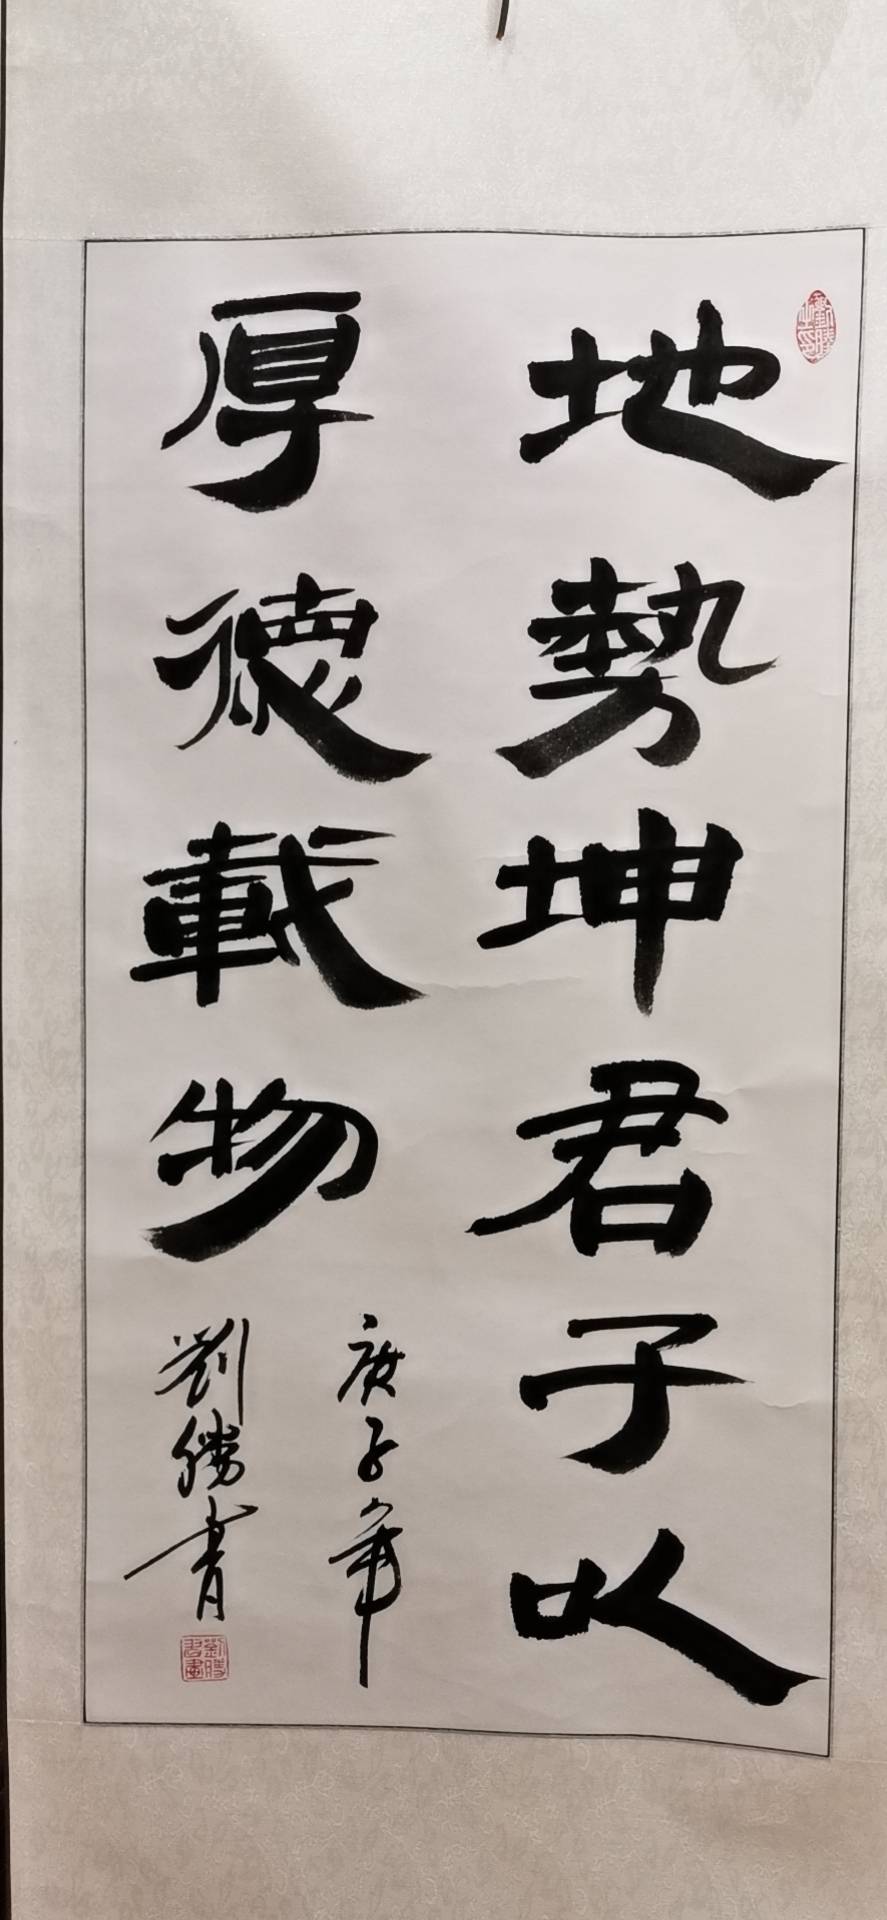 地勢坤君子以
厚德載物
庚子年
劉勝書